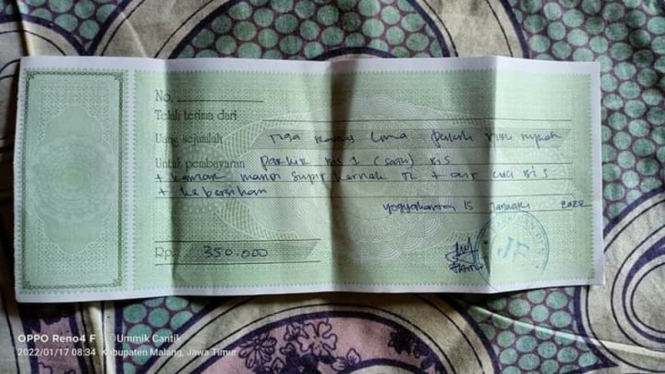 No.
Telah terima dari
Uang sejumlah Tiga Ratus Lima Puluh Ribu Rupiah
Untuk pembayaran Parkir Bis 1 (satu) Bis
+ kamar mandi supir kernek TL + air cuci Bis
+ kebersihan
Yogyakarta, 15 Januari 2022
Rp. 350.000
JF
OPPO Reno4 F Ummik Cantik
2022/01/17 08:34 Kabupaten Malang, Jawa Timur